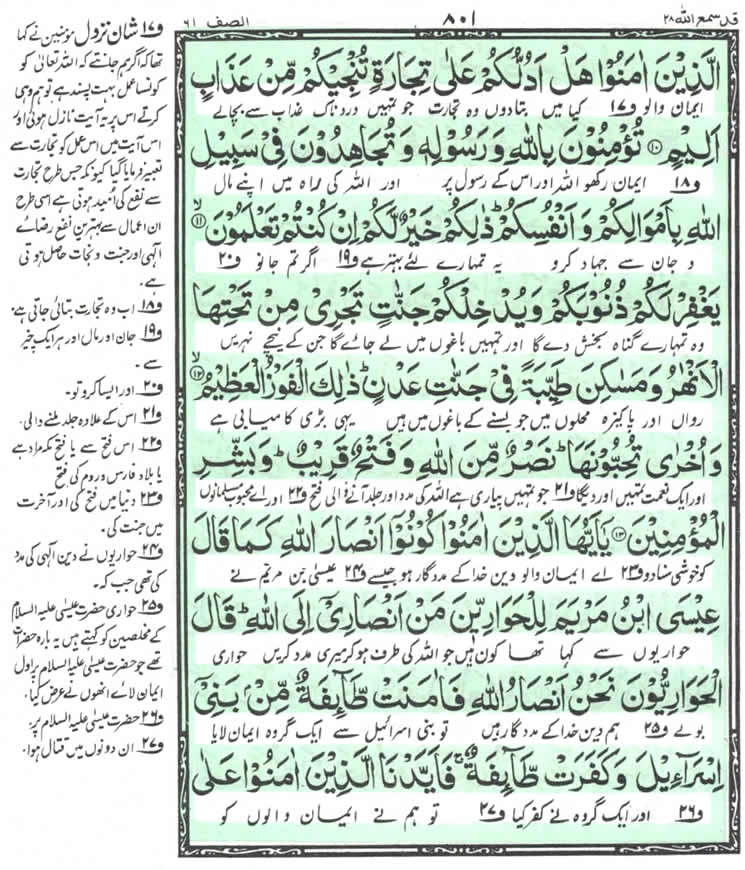 قد سمع اللہ ٢٨
٨٠١
الصف ٦١
الَّذِيْنَ اٰمَنُوْا هَلْ اَدُلُّكُمْ عَلٰى تِجَارَةٍ تُنْجِيْكُمْ مِّنْ عَذَابٍ
ایمان والو ف١٧ کیا میں بتادوں وہ تجارت جو تمہیں دردناک عذاب سے بچالے
اَلِيْمٍ ١٠ تُؤْمِنُوْنَ بِاللّٰهِ وَرَسُوْلِهٖ وَتُجَاهِدُوْنَ فِيْ سَبِيْلِ
ف١٨ ایمان رکھو اللہ اور اس کے رسول پر اور اللہ کی راہ میں اپنے مال
اللّٰهِ بِاَمْوَالِكُمْ وَاَنْفُسِكُمْ ؕ ذٰلِكُمْ خَيْرٌ لَّكُمْ اِنْ كُنْتُمْ تَعْلَمُوْنَ ١١
و جان سے جہاد کرو یہ تمہارے لئے بہتر ہے ف١٩ اگر تم جانو ف٢٠
يَغْفِرْ لَكُمْ ذُنُوْبَكُمْ وَيُدْخِلْكُمْ جَنّٰتٍ تَجْرِيْ مِنْ تَحْتِهَا
وہ تمہارے گناہ بخش دے گا اور تمہیں باغوں میں لے جائے گا جن کے نیچے نہریں
الْاَنْهٰرُ وَمَسٰكِنَ طَيِّبَةً فِيْ جَنّٰتِ عَدْنٍ ؕ ذٰلِكَ الْفَوْزُ الْعَظِيْمُ ١٢
رواں اور پاکیزہ محلوں میں جو بسنے کے باغوں میں ہیں یہی بڑی کامیابی ہے
وَاُخْرٰى تُحِبُّوْنَهَا ؕ نَصْرٌ مِّنَ اللّٰهِ وَفَتْحٌ قَرِيْبٌ ؕ وَبَشِّرِ
اور ایک نعمت تمہیں اور دیگا ف٢١ جو تمہیں پیاری ہے اللہ کی مدد اور جلد آنے والی فتح ف٢٢ اور اے محبوب مسلمانوں
الْمُؤْمِنِيْنَ ١٣ يٰٓاَيُّهَا الَّذِيْنَ اٰمَنُوْا كُوْنُوْٓا اَنْصَارَ اللّٰهِ كَمَا قَالَ
کو خوشی سنادو ف٢٣ اے ایمان والو دین خدا کے مددگار ہو جیسے ف٢٤ عیسیٰ بن مریم نے
عِيْسَى ابْنُ مَرْيَمَ لِلْحَوَارِيّٖنَ مَنْ اَنْصَارِيْٓ اِلَى اللّٰهِ ؕ قَالَ
حواریوں سے کہا تھا کون ہیں جو اللہ کی طرف ہو کر میری مدد کریں حواری
الْحَوَارِيُّوْنَ نَحْنُ اَنْصَارُ اللّٰهِ فَاٰمَنَتْ طَّآئِفَةٌ مِّنْۢ بَنِيْٓ
بولے ف٢٥ ہم دین خدا کے مددگار ہیں تو بنی اسرائیل سے ایک گروہ ایمان لایا
اِسْرَآءِيْلَ وَكَفَرَتْ طَّآئِفَةٌ ۚ فَاَيَّدْنَا الَّذِيْنَ اٰمَنُوْا عَلٰى
ف٢٦ اور ایک گروہ نے کفر کیا ف٢٧ تو ہم نے ایمان والوں کو
ف١٧ شان نزول مؤمنین نے کہا
تھا کہ اگر ہم جانتے کہ اللہ تعالیٰ کو
کونسا عمل بہت پسند ہے تو ہم وہی
کرتے اس پر یہ آیت نازل ہوئی اور
اس آیت میں اس عمل کو تجارت سے
تعبیر فرمایا گیا کیونکہ جس طرح تجارت
سے نفع کی امید ہوتی ہے اسی طرح
ان اعمال سے بہترین نفع رضائے
الٰہی اور جنت و نجات حاصل ہوتی
ہے۔
ف١٨ اب وہ تجارت بتائی جاتی ہے۔
ف١٩ جان اور مال اور ہر ایک چیز
سے۔
ف٢٠ اور ایسا کرو تو۔
ف٢١ اس کے علاوہ جلد ملنے والی۔
ف٢٢ اس فتح سے یا فتح مکہ مراد ہے
یا بلاد فارس و روم کی فتح
ف٢٣ دنیا میں فتح کی اور آخرت
میں جنت کی۔
ف٢٤ حواریوں نے دین الٰہی کی مدد
کی تھی جب کہ۔
ف٢٥ حواری حضرت عیسیٰ علیہ السلام
کے مخلصین کو کہتے ہیں یہ بارہ حضرات
تھے جو حضرت عیسیٰ علیہ السلام پر اول
ایمان لائے انھوں نے عرض کیا۔
ف٢٦ حضرت عیسیٰ علیہ السلام پر۔
ف٢٧ ان دونوں میں قتال ہوا۔